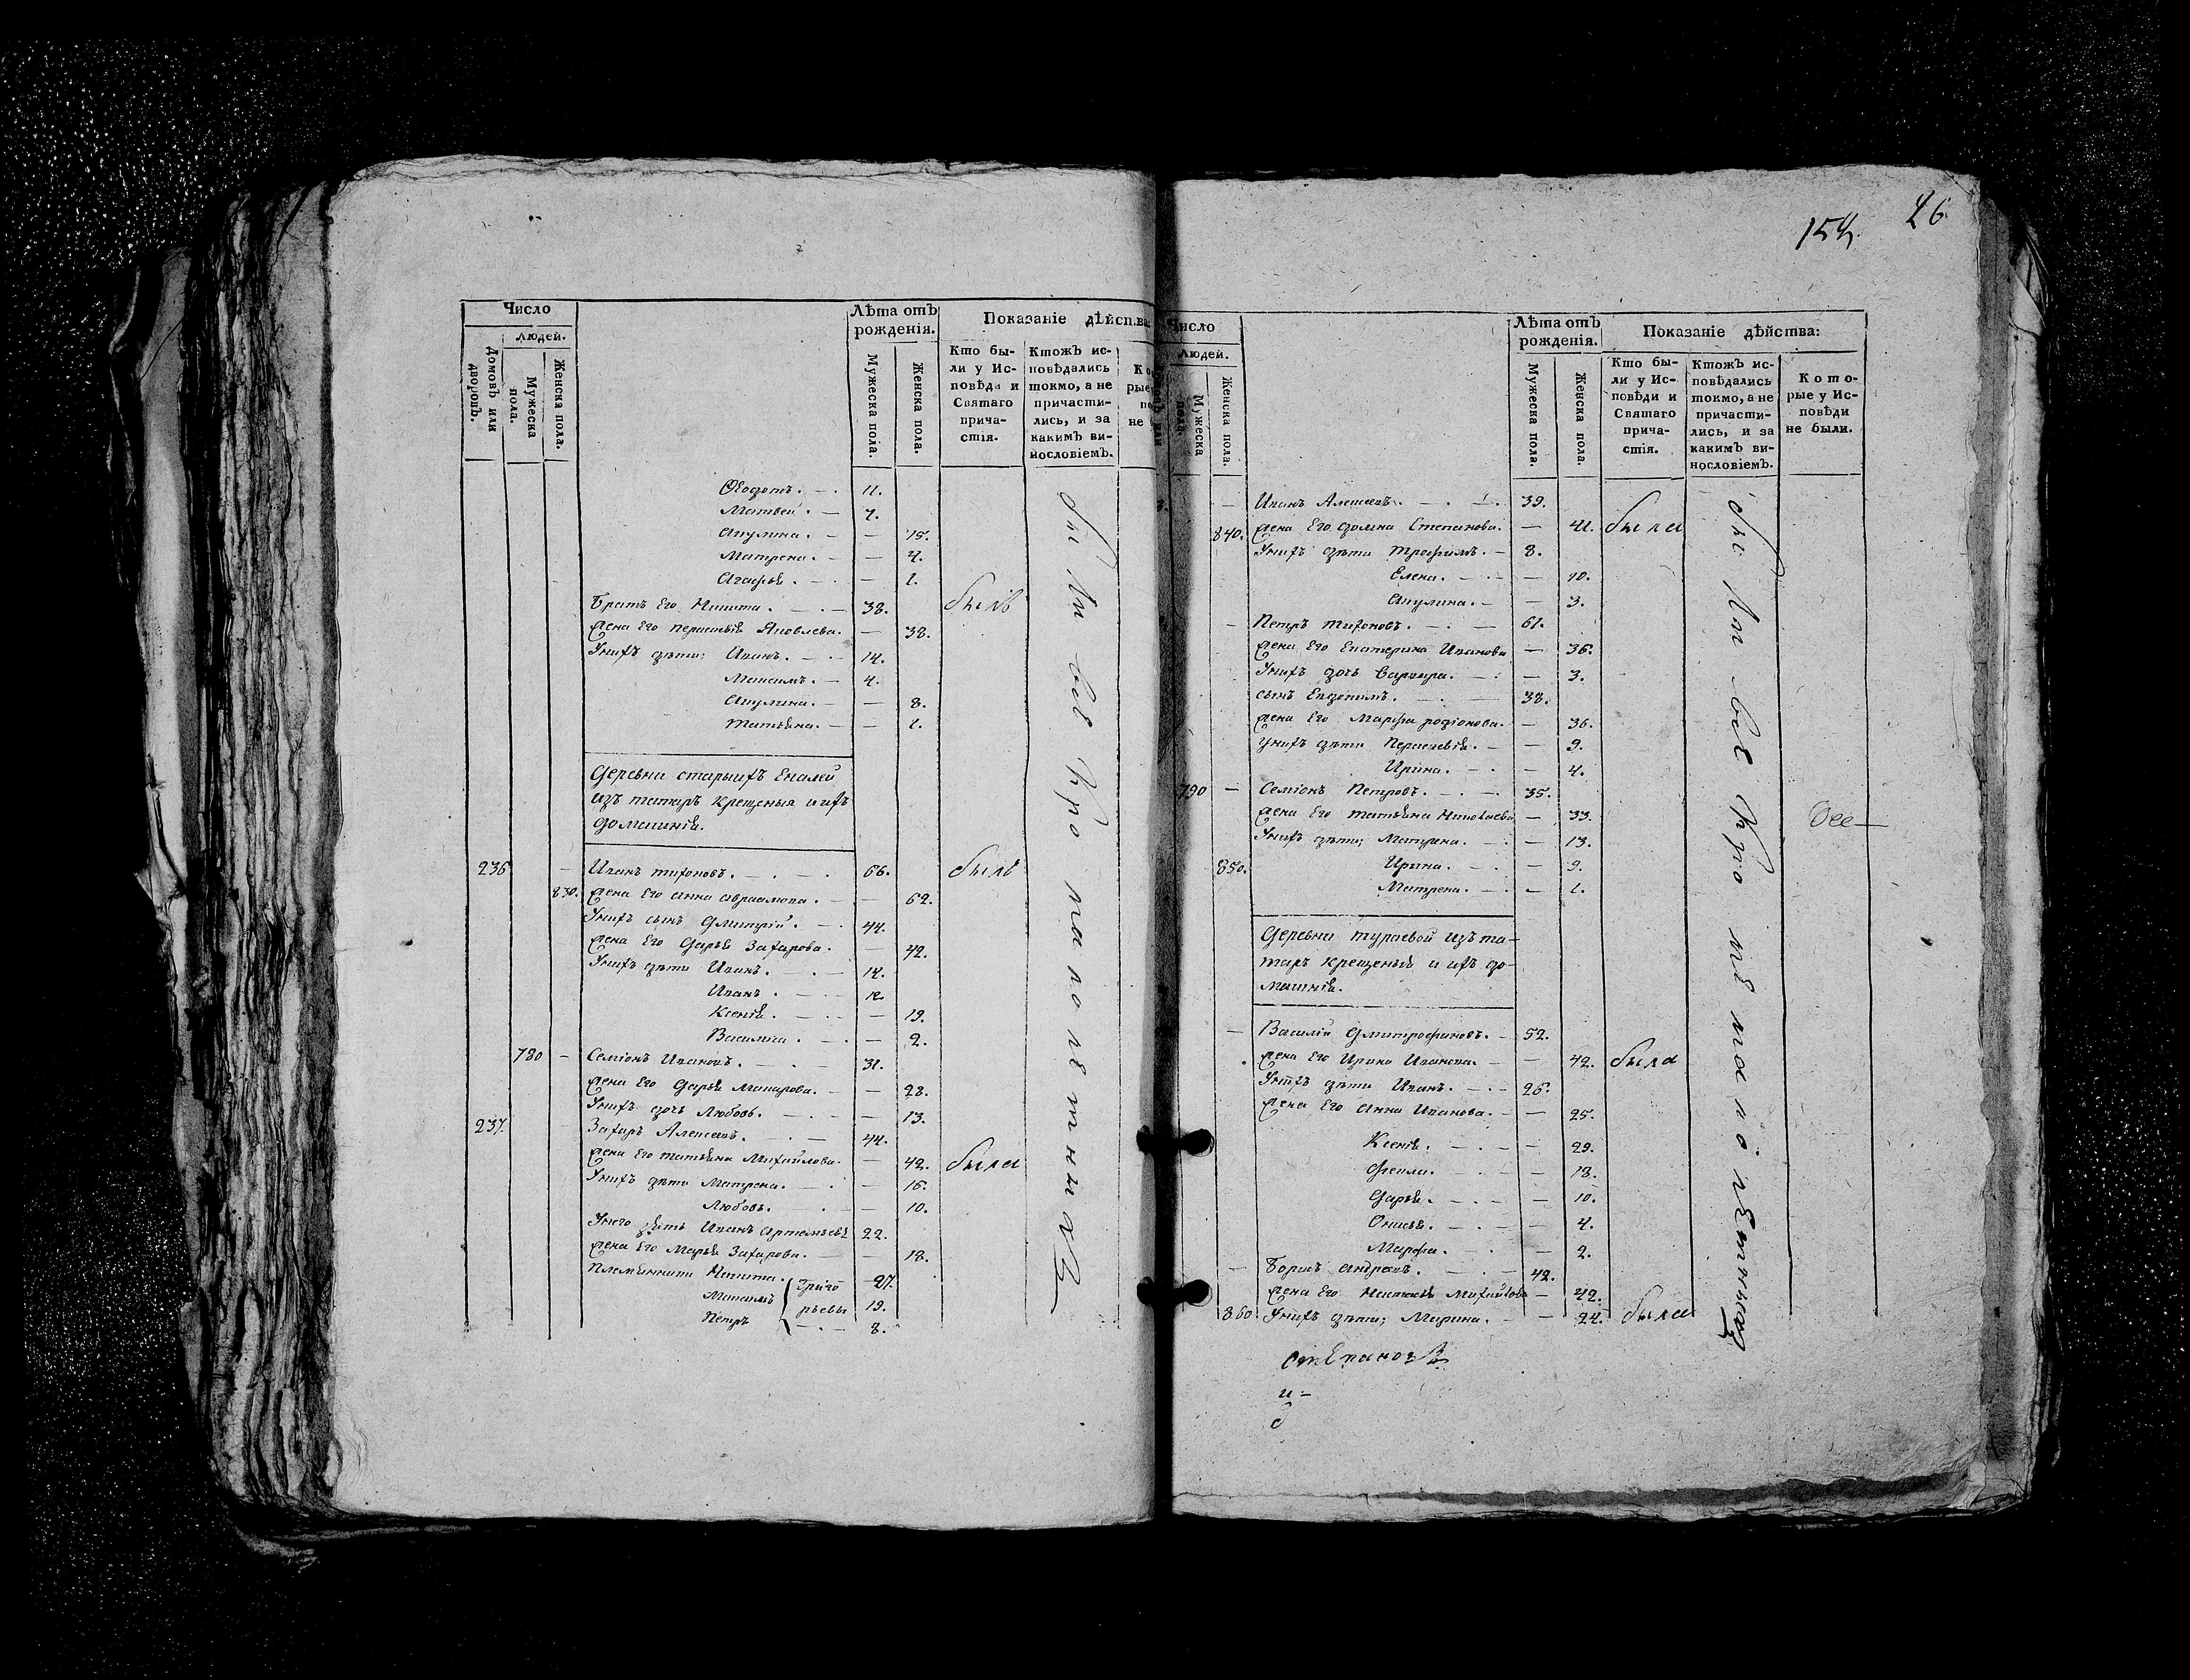 Число
Людей.
Домовъ или дворовъ.
Мужеска пола.
Женска пола.
Лѣта отъ рожденія.
Мужеска пола.
Женска пола.
Показаніе дѣйства:
Кто бы-
ли у Ис-
повѣди и
Святаго
прича-
стія.
Ктожъ ис-
повѣдались
токмо, а не
причасти-
лись, и за
какимъ ви-
нословіемъ.
Ѳеодотъ. 11.
Матвей. 7.
Акулина. 15.
Матрена. 4.
Агафья. 1.
Братъ Его Никита. 38. былъ
жена Его Параскевія Яковлева. 38.
Унихъ дѣти: Иванъ. 14.
Максимъ. 4.
Акулина. 8.
Татьяна. 1.
Деревни старыхъ Еналей
изъ татаръ крещеныя и ихъ
домашнія.
236 Иванъ тихоновъ. 66. былъ
830. жена Его анна авраамова. 62.
Унихъ сынъ Дмитрій. 44.
жена Его Дарья Захарова. 42.
Унихъ дѣти Иванъ. 14.
Иванъ. 12.
Ксенія. 19.
Василиса. 2.
780 Семіонъ Ивановъ. 31.
жена Его Дарья Макарова. 28.
Унихъ дочь Любовь. 13.
237. Захаръ Алексеевъ. 44.
жена Его татьяна Михайлова. 42. была
Унихъ дѣти Матрена. 16.
Любовь. 10.
Унего зять Иванъ Артемьевъ 22.
жена Его Марья Захарова. 18.
Племянники Никита. 27.
Максимъ 19.
Петръ 8.
Григо
рьевы
154. 26
Число
Людей.
Мужеска пола.
Женска пола.
Лѣта отъ рожденія.
Мужеска пола.
Женска пола.
Показаніе дѣйства:
Кто бы-
ли у Ис-
повѣди и
Святаго
прича-
стія.
Ктожъ ис-
повѣдались
токмо, а не
причасти-
лись, и за
какимъ ви-
нословіемъ.
Кото-
рые у Ис-
повѣди
не были.
Иванъ Алексеевъ. 39.
840. жена Его домна Степанова. 41. была
Унихъ дѣти Трофимъ. 8.
Елена. 10.
Акулина. 3.
Петръ тихоновъ. 61.
жена Его Екатерина Иванова 36.
Унихъ дочь Варвара. 3.
сынъ Евдокимъ. 38.
жена Его Марфа родіонова. 36.
Унихъ дѣти Параскевія. 9.
Ирина. 4.
790 Семіонъ Петровъ. 35.
жена Его татьяна Николаева 33.
Унихъ дѣти; Матрена. 13.
850. Ирина. 9.
Матрена. 1.
Деревни тураевой изъ та-
таръ крещеныя и ихъ до-
машнія.
Василій Дмитрофановъ. 52.
жена Его Ирина Иванова. 42. была
Унихъ дѣти Иванъ. 26.
жена Его Анна Иванова. 25.
Ксенія. 29.
Фекла. 18.
Дарья. 10.
Онисья. 4.
Марфа. 2.
Борисъ андреевъ. 42.
жена Его Настасья Михайлова 42.
860 Унихъ дѣти; Марина. 24. была